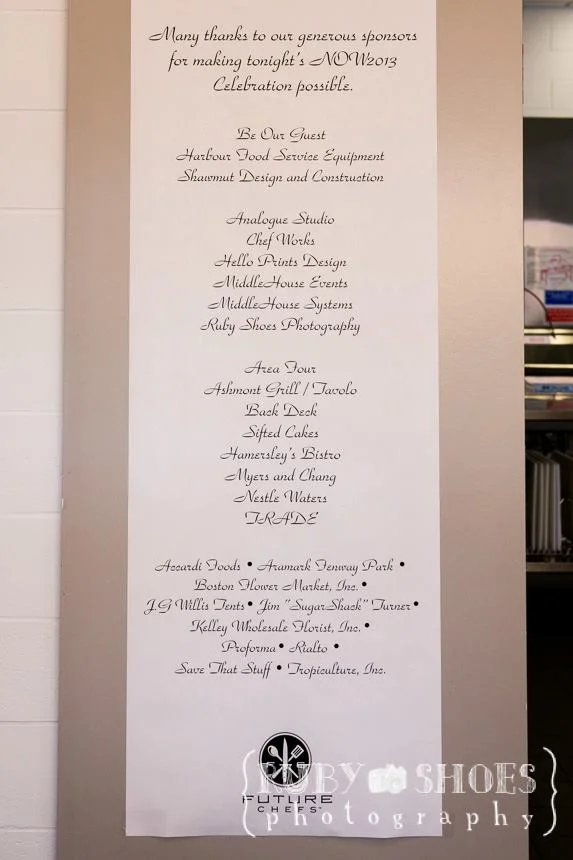 Many thanks to our generous sponsors
for making tonight's NOW2013
Celebration possible.
Be Our Guest
Harbour Food Service Equipment
Shawmut Design and Construction
Analogue Studio
Chef Works
Hello Prints Design
MiddleHouse Events
MiddleHouse Systems
Ruby Shoes Photography
Area Four
Ashmont Grill / Tavolo
Back Deck
Sifted Cakes
Hamersley's Bistro
Myers and Chang
Nestle Waters
TRADE
Accardi Foods • Aramark Fenway Park •
Boston Flower Market, Inc. •
J.G Willis Tents • Jim "SugarShack" Turner •
Kelley Wholesale Florist, Inc. •
Proforma • Rialto •
Save That Stuff • Tropiculture, Inc.
FUTURE
CHEFS
{RUBY SHOES}
{photography}